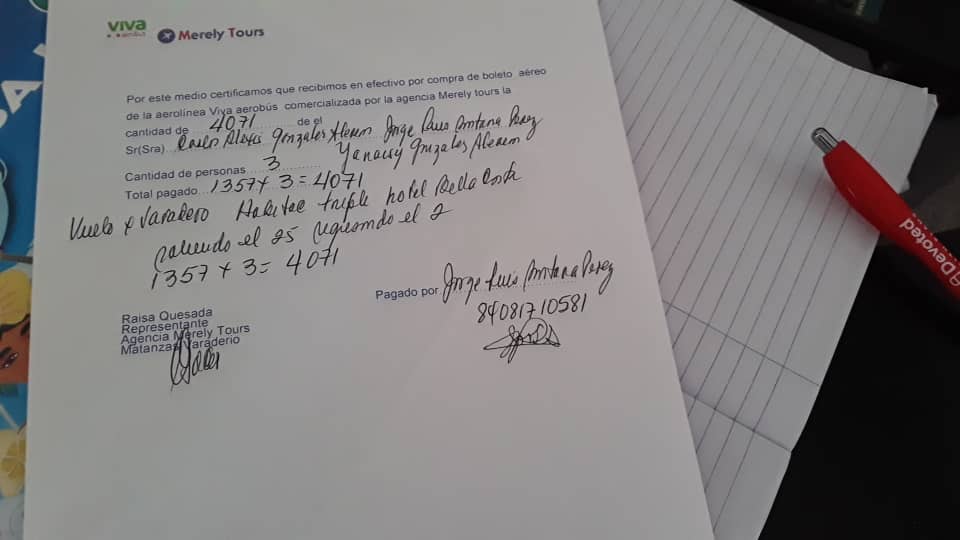 viva
aerobus
Merely Tours
Por este medio certificamos que recibimos en efectivo por compra de boleto aéreo
de la aerolínea Viva aerobús comercializada por la agencia Merely tours la
cantidad de 4071 de el
Sr(Sra) Gonzalez Jorge Luis Perez
Cantidad de personas 3
Total pagado 1357 x 3 = 4071
Vuelo x Varadero triple hotel Bella Costa
saliendo el 25 regresando el 2
1357 x 3 = 4071
Pagado por Jorge Luis Perez
84081710581
Raisa Quesada
Representante
Agencia Merely Tours
Matanzas Varaderio
Devoted